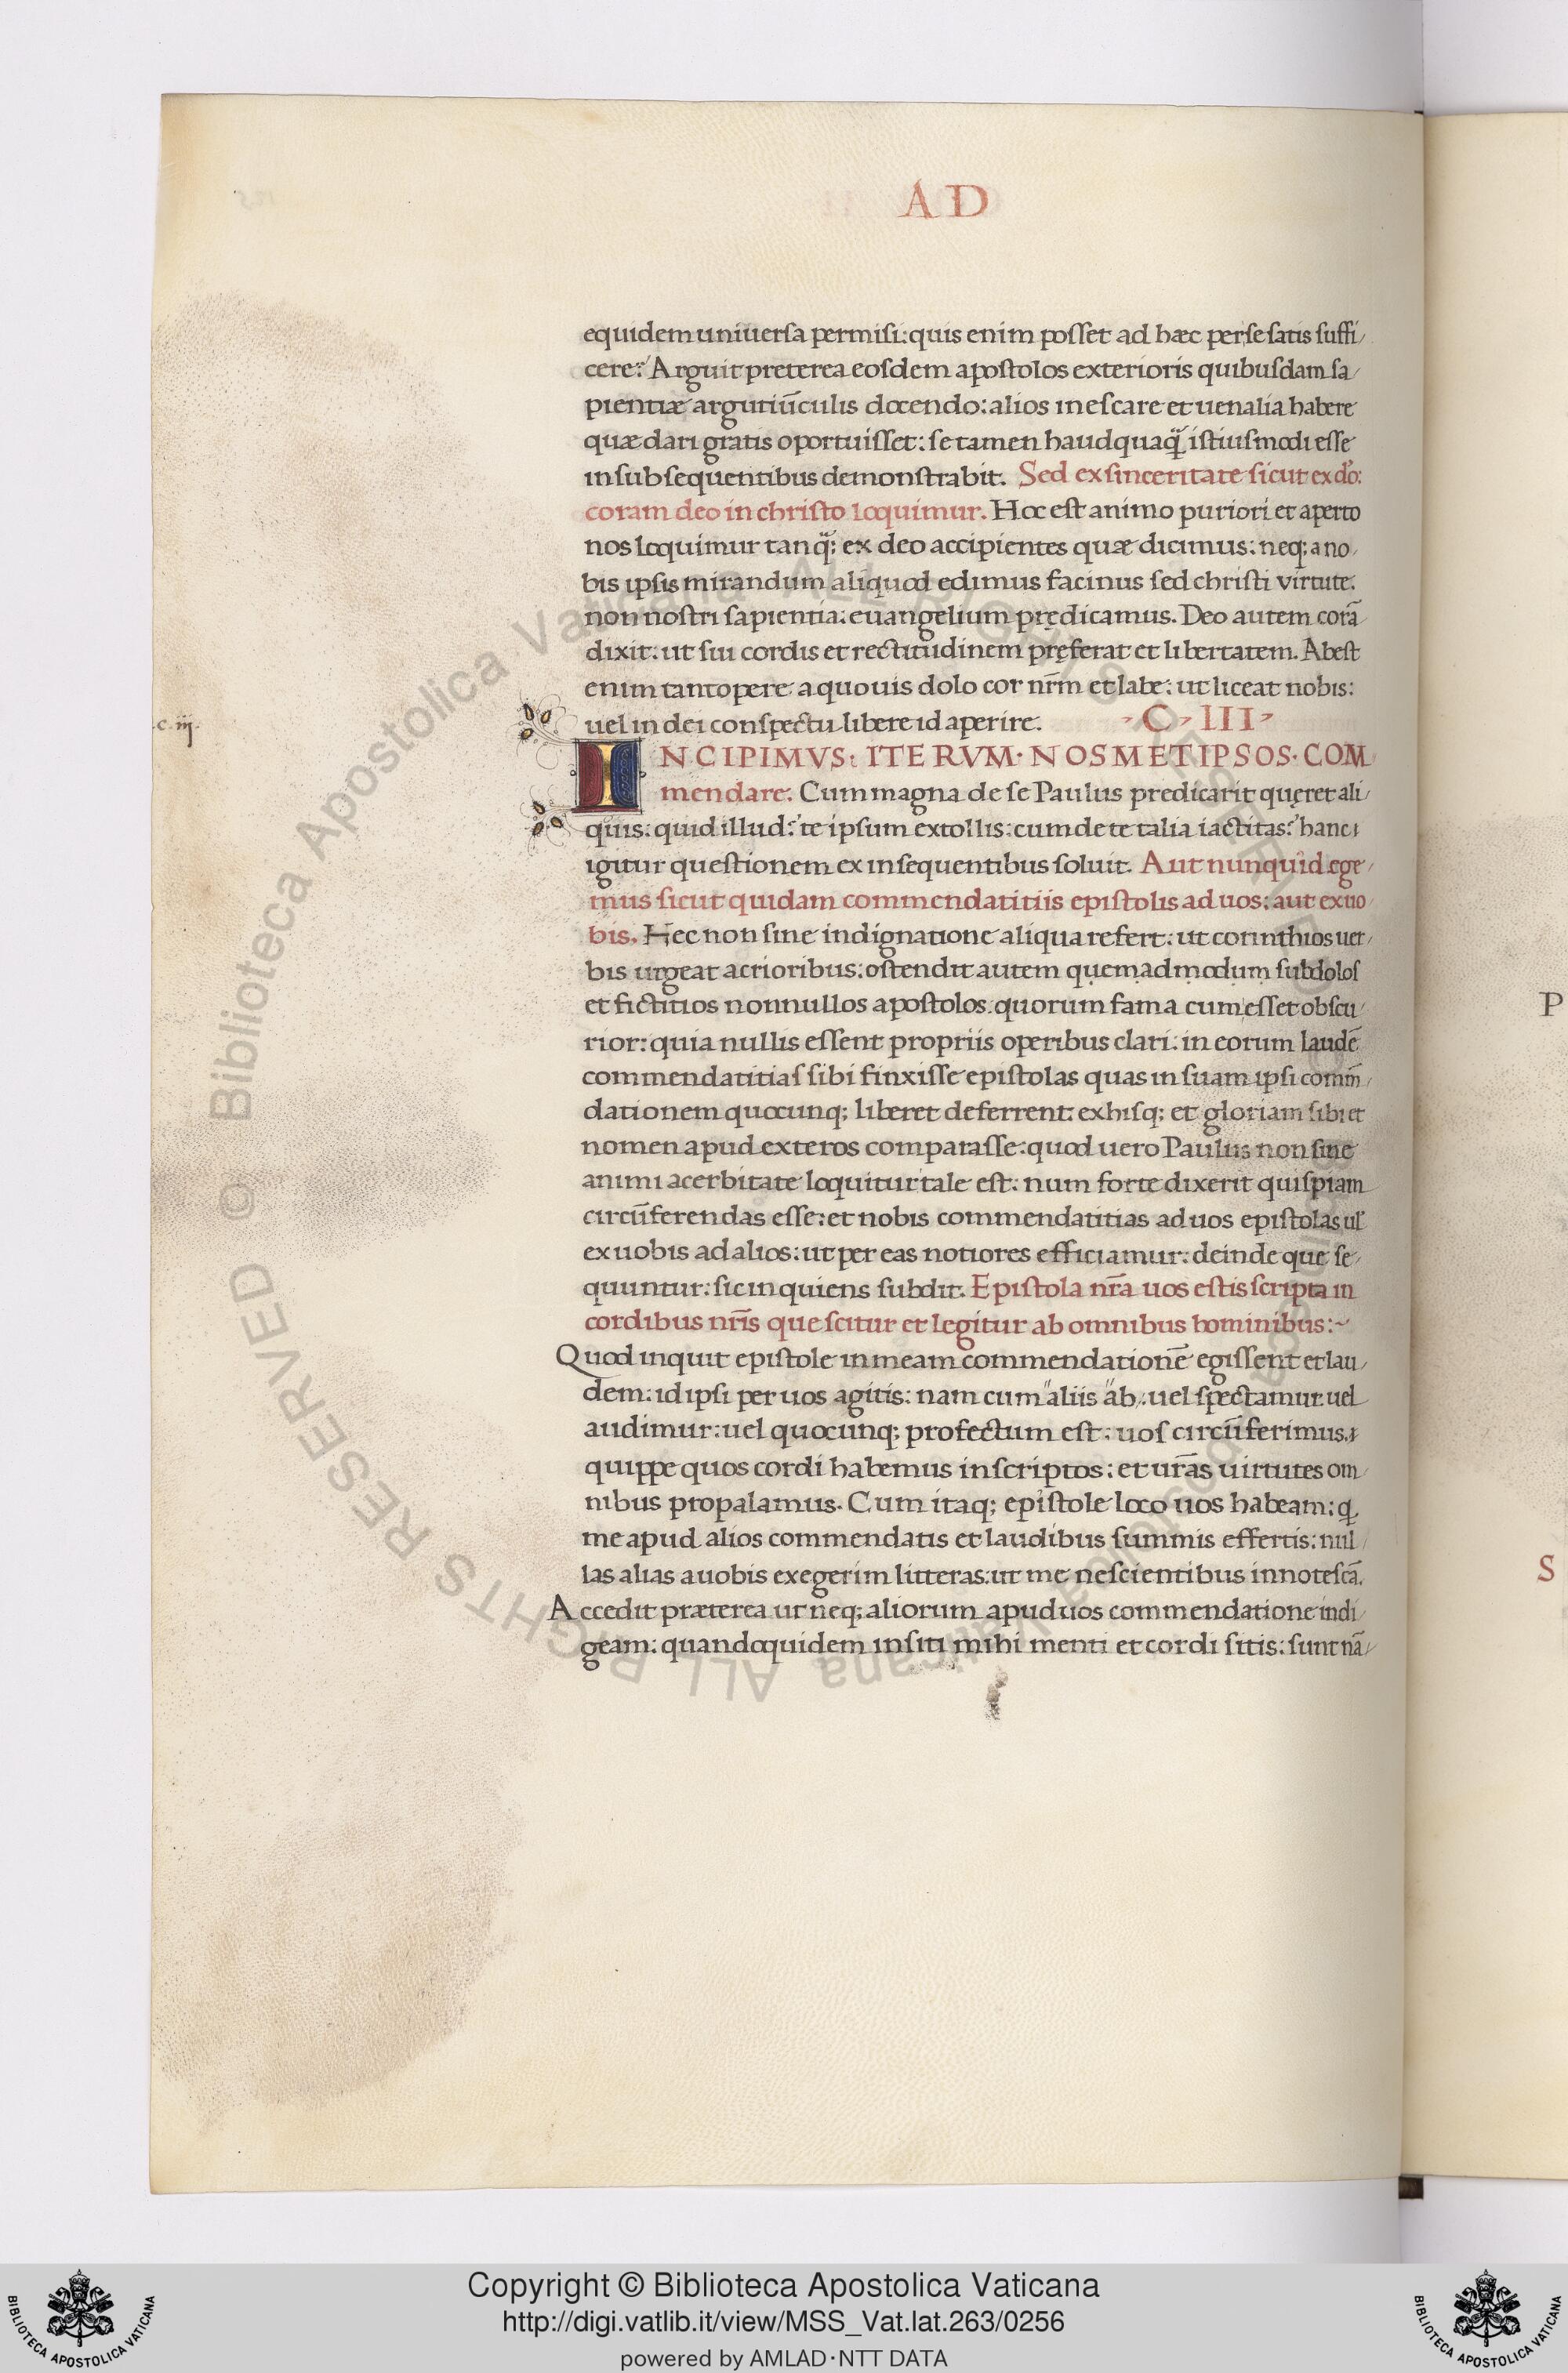 AD
equidem uniuersa permisi: quis enim posset ad hæc per se satis suffi/
cere? Arguit preterea eosdem apostolos exterioris quibusdam sa/
pientiæ argutiūculis docendo: alios inescare et uenalia habere
quæ dari gratis oportuisset: se tamen haudquaq̃ istiusmodi esse
in subsequentibus demonstrabit. Sed ex sinceritate sicut ex do:
coram deo in christo loquimur. Hoc est animo puriori et aperto
nos loquimur tanq̃: ex deo accipientes quæ dicimus: neq; a no/
bis ipsis mirandum aliquod edimus facinus sed christi virtute:
non nostri sapientia: euangelium prędicamus. Deo autem corā
dixit: ut sui cordis et rectitudinem pręferat et libertatem. Abest
enim tantopere a quouis dolo cor nr̃m et labe: ut liceat nobis:
uel in dei conspectu libere id aperire. C III
.c. iij.
INCIPIMVS: ITERVM· NOSMETIPSOS· COM
mendare. Cum magna de se Paulus predicarit quęret ali/
quis: quid illud? te ipsum extollis: cum de te talia iactitas? hanc
igitur questionem ex insequentibus soluit. Aut nunquid ege/
mus sicut quidam commendatitiis epistolis ad uos: aut ex uo/
bis. Hec non sine indignatione aliqua refert: ut corinthios uer/
bis urgeat acrioribus: ostendit autem quemadmodum subdolos
et fictitios nonnullos apostolos quorum fama cum esset obscu/
rior: quia nullis essent propriis operibus clari: in eorum laudē
commendatitias sibi finxisse epistolas quas in suam ipsi comm̃/
dationem quocunq; liberet deferrent: ex hisq; et gloriam sibi et
nomen apud exteros comparasse: quod uero Paulus non sine
animi acerbitate loquitur tale est: num forte dixerit quispiam
circūferendas esse: et nobis commendatitias ad uos epistolas ul̃
ex uobis ad alios: ut per eas notiores efficiamur: deinde quę se/
quuntur: sic inquiens subdit. Epistola nr̃a uos estis scripta in
cordibus nr̃is que scitur et legitur ab omnibus hominibus:~
Quod inquit epistole in meam commendationē egissent et lau/
dem: id ipsi per uos agitis: nam cum "aliis "ab: uel spectamur uel
audimur: uel quocunq; profectum est: uos circūferimus.
quippe quos cordi habemus inscriptos: et ur̃as uirtutes om/
nibus propalamus. Cum itaq; epistole loco uos habeam: q
me apud alios commendatis et laudibus summis effertis: nul/
las alias a uobis exegerim litteras: ut me nescientibus innotescā.
Accedit præterea ut neq; aliorum apud uos commendatione indi/
geam: quandoquidem insiti mihi menti et cordi sitis: sunt nā/
P
S
© Biblioteca Apostolica Vaticana ALL RIGHTS RESERVED
© Biblioteca Apostolica Vaticana ALL RIGHTS RESERVED
Copyright © Biblioteca Apostolica Vaticana
http://digi.vatlib.it/view/MSS_Vat.lat.263/0256
powered by AMLAD·NTT DATA
BIBLIOTECA APOSTOLICA VATICANA
BIBLIOTECA APOSTOLICA VATICANA